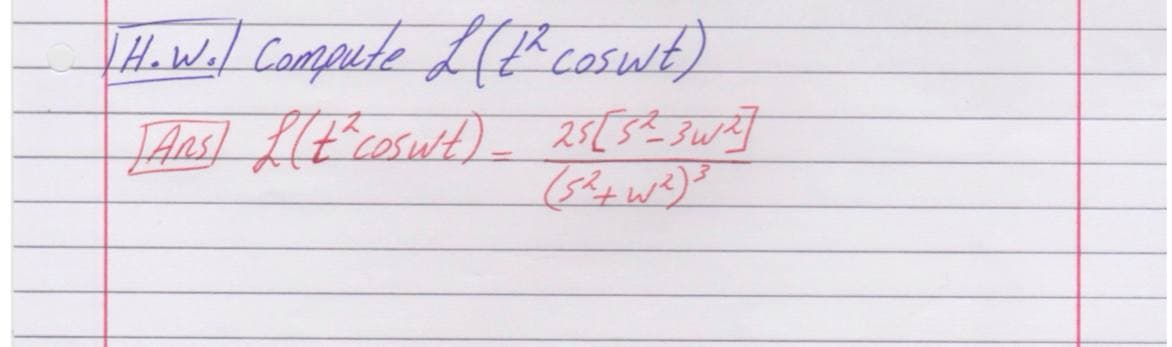 H.W. Compute ℒ(t² cos wt)
Ans ℒ(t² cos wt) = 2s[s² - 3w²] / (s² + w²)³